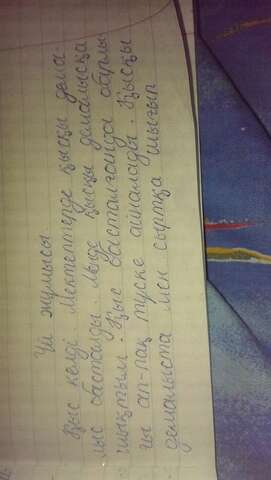 Үй жұмысы
Қыс келді. Мектептерде қысқы дема
лыс басталды. Мен де қысқы демалысқа
шықтым. Қыс басталғанда барлы
ғы ап-пақ түске айналады. Қысқы
демалыста мен сыртқа шығып